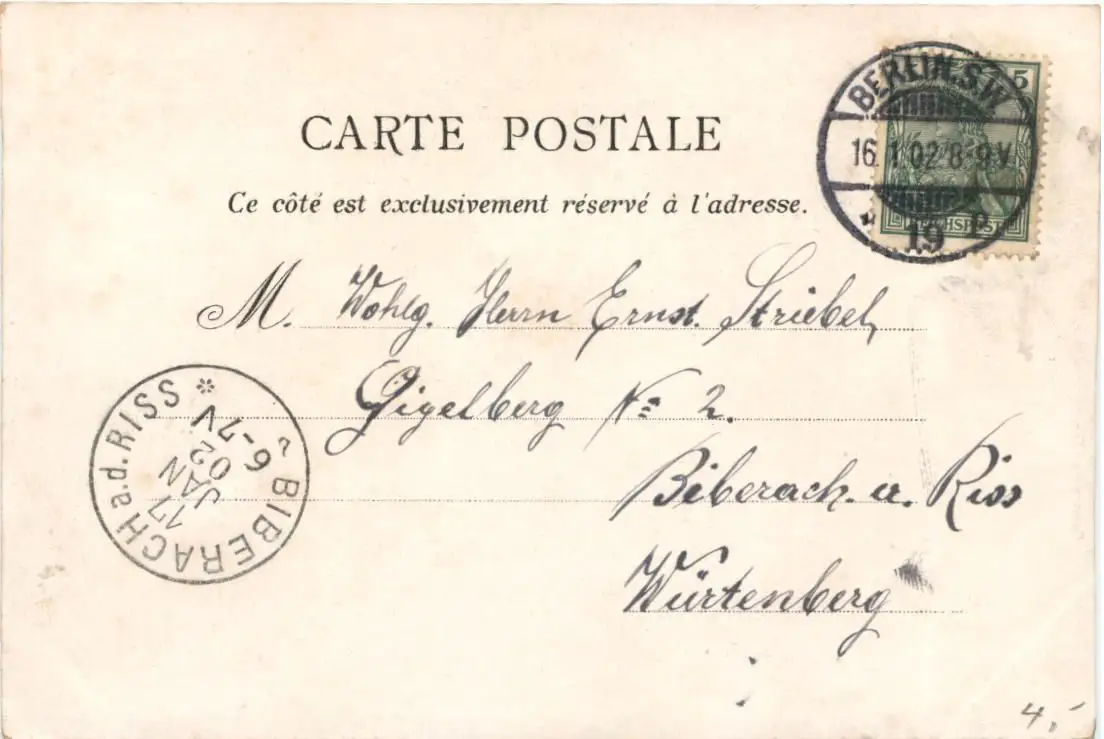 CARTE POSTALE
Ce côté est exclusivement réservé à l'adresse.
BERLIN.S.W.
16.1.02 8-9V.
* 19 p.
5
REICHSPOST
M. Wohlg. Herrn Ernst Striebel,
Gigelberg No 2.
Biberach a. Riss
Würtenberg
BIBERACH a.d. RISS *
17
JAN
02
6-7V
4,-